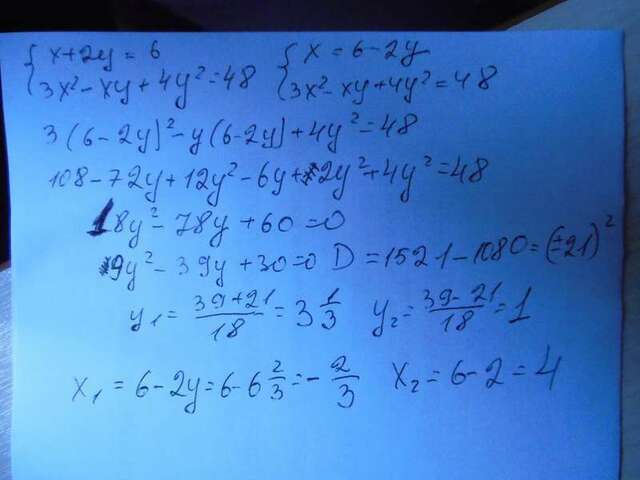 { x + 2y = 6 { x = 6 - 2y
{ 3x² - xy + 4y² = 48 { 3x² - xy + 4y² = 48
3(6 - 2y)² - y(6 - 2y) + 4y² = 48
108 - 72y + 12y² - 6y + 2y² + 4y² = 48
18y² - 78y + 60 = 0
9y² - 39y + 30 = 0 D = 1521 - 1080 = (±21)²
y₁ = (39 + 21)/18 = 3 1/3 y₂ = (39 - 21)/18 = 1
x₁ = 6 - 2y = 6 - 6 2/3 = - 2/3 x₂ = 6 - 2 = 4